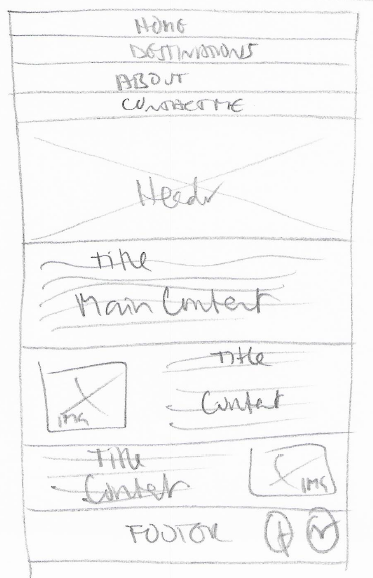 HOME
DESTINATIONS
ABOUT
CONTACT ME
Header
Title
Main Content
Title
Content
IMG
Title
Content
IMG
FOOTOR